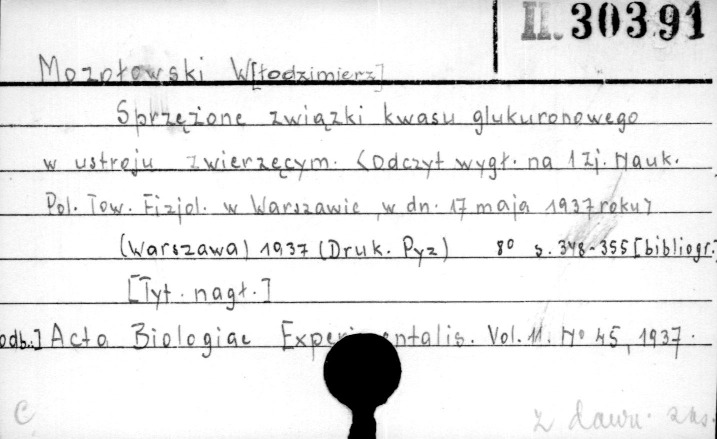 II. 30391
Mozołowski W[łodzimierz]
Sprzężone związki kwasu glukuronowego
w ustroju zwierzęcym. (Odczyt wygł. na 1 zj. Nauk.
Pol. Tow. Fizjol. w Warszawie w dn. 17 maja 1937 roku)
(Warszawa) 1937 (Druk. Pyz) 8° s. 348-355 [bibliogr.]
[Tyt. nagł.]
odb.] Acta Biologiae Experimentalis. Vol. 11. No 45, 1937.
C z dawn. zas.